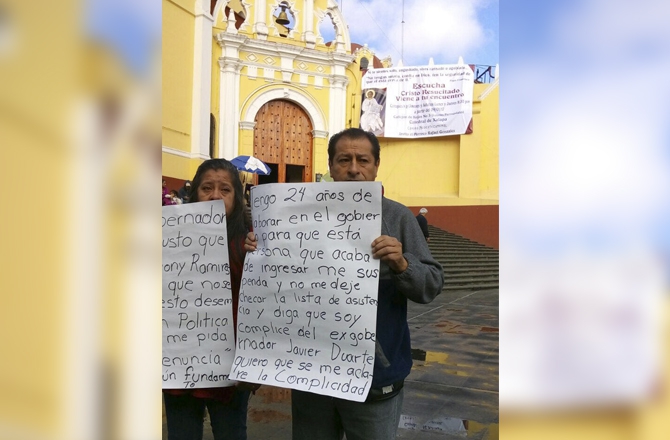 Escucha
Cristo Resucitado
Viene a tu encuentro
Catedral de Xalapa
bernador
usto que
ony Ramirez
que nose
esto desem
n Politica
me pida
enuncia"
ún fundame
to
engo 24 años de
aborar en el gobier
o para que está
ersona que acaba
de ingresar me sus
penda y no me deje
checar la lista de asisten
cia y diga que soy
complice del exgobe
rnador Javier Duarte
quiero que se me acla
re la Complicidad